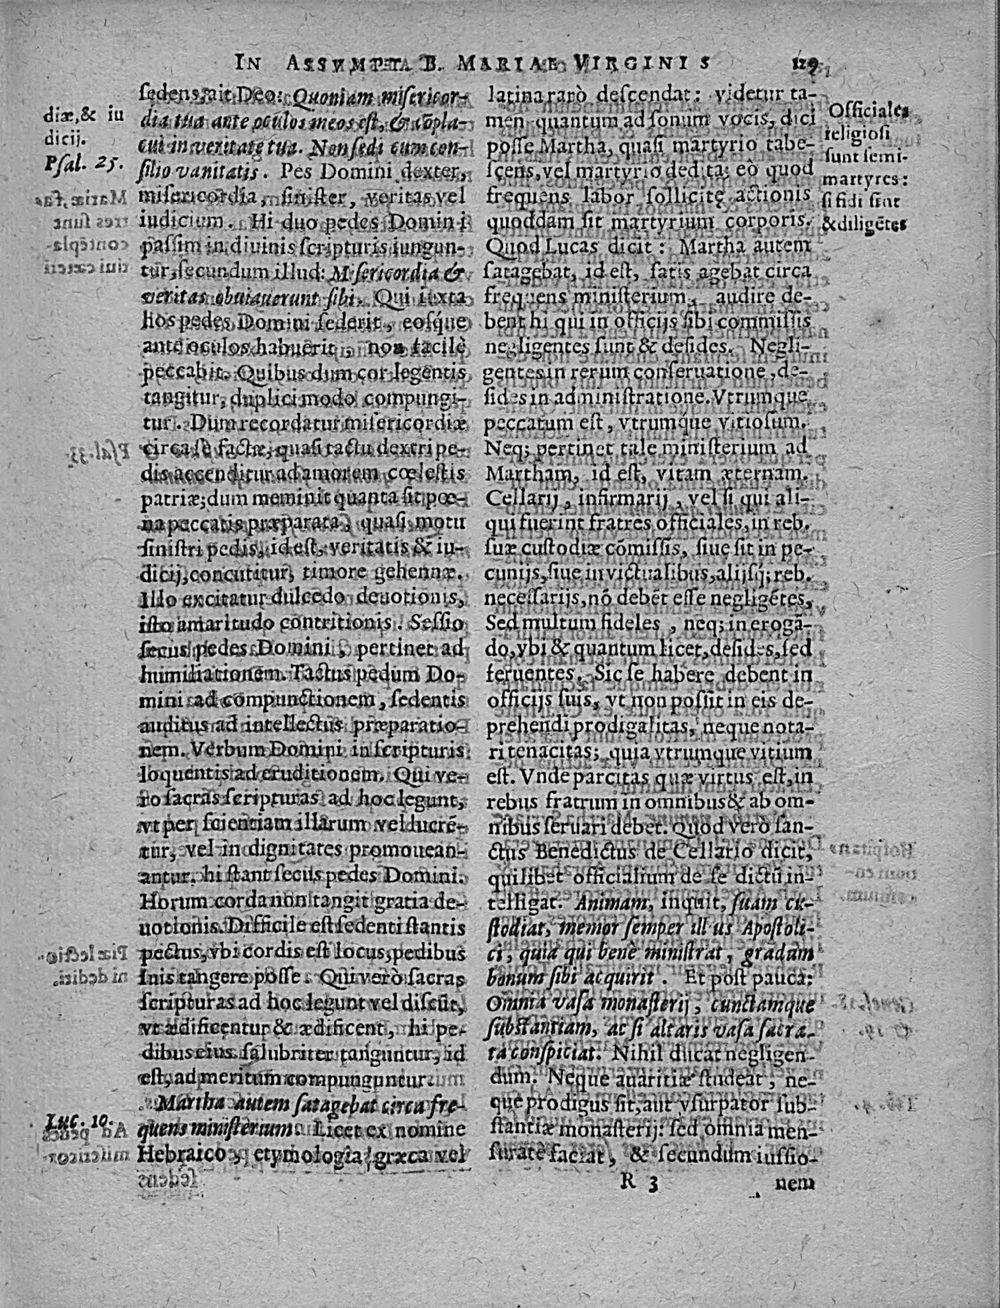 IN ASSVMPTA B. MARIAE VIRGINIS 129
diæ,& iu
dicij.
Psal. 25.
sedens,ait Deo: Quoniam misericor-
dia tua ante oculos meos est, & cōpla-
cui in veritate tua. Non sedi cum con-
silio vanitatis. Pes Domini dexter,
misericordia, sinister, veritas vel
iudicium. Hi duo pedes Domini
passim in diuinis scripturis iungun-
tur,secundum illud: Misericordia &
veritas obuiauerunt sibi. Qui iuxta
hos pedes Domini sederit, eosq́ue
ante oculos habuerit, non facilè
peccabit. Quibus dum cor legentis
tangitur, duplici modo compungi-
tur. Dum recordatur misericordiæ
circa se factæ, quasi tactu dextri pe-
dis accenditur ad amorem cœlestis
patriæ;dum meminit quanta sit pœ-
na peccatis præparata, quasi motu
sinistri pedis, id est, veritatis & iu-
dicij,concutitur, timore gehennæ.
Illo excitatur dulcedo deuotionis,
isto amaritudo contritionis. Sessio
secus pedes Domini, pertinet ad
humiliationem. Tactus pedum Do-
mini ad compunctionem, sedentis
auditus ad intellectus præparatio-
nem. Verbum Domini in scripturis
loquentis ad eruditionem. Qui ve-
rò sacras scripturas ad hoc legunt,
vt per scientiam illarum vel lucrē-
tur, vel in dignitates promouean-
antur, hi stant secus pedes Domini.
Horum corda non tangit gratia de-
uotionis. Difficile est sedenti stantis
pectus,vbi cordis est locus,pedibus
suis tangere posse. Qui verò sacras
scripturas ad hoc legunt vel discūt,
vt ædificentur & ædificent, hi pe-
dibus eius salubriter tanguntur, id
est, ad meritum compunguntur.
Luc. 10.
Martha autem satagebat circa fre-
quens ministerium. Licet ex nomine
Hebraico, etymologia græca vel
latina rarò descendat: videtur ta-
men quantum ad sonum vocis, dici
posse Martha, quasi martyrio tabe-
scens, vel martyrio dedita; eò quod
frequens labor sollicitę actionis
quoddam sit martyrium corporis.
Quod Lucas dicit: Martha autem
satagebat, id est, satis agebat circa
frequens ministerium, audire de-
bent hi qui in officijs sibi commissis
negligentes sunt & desides. Negli-
gentes in rerum conseruatione, de-
sides in administratione. Vtrumque
peccatum est, vtrumque vitiosum.
Neq; pertinet tale ministerium ad
Martham, id est, vitam æternam.
Cellarij, infirmarij, vel si qui ali-
qui fuerint fratres officiales, in reb.
suæ custodiæ cōmissis, siue sit in pe-
cunijs,siue in victualibus,alijsq́; reb.
necessarijs, nō debēt esse negligētes,
Sed multum fideles, neq; in erogā-
do,vbi & quantum licet,desides,sed
feruentes. Sic se habere debent in
officijs suis, vt non possit in eis de-
prehendi prodigalitas, neque nota-
ri tenacitas; quia vtrumque vitium
est. Vnde parcitas quæ virtus est,in
rebus fratrum in omnibus & ab om-
nibus seruari debet. Quod verò san-
ctus Benedictus de Cellario dicit,
quilibet officialium de se dictū in-
telligat. Animam, inquit, suam cu-
stodiat, memor semper illius Apostoli-
ci, quia qui bene ministrat, gradum
bonum sibi acquirit. Et post pauca:
Omnia vasa monasterij, cunctamque
substantiam, ac si altaris vasa sacra-
ta conspiciat. Nihil ducat negligen-
dum. Neque auaritiæ studeat, ne-
que prodigus sit, aut vsurpator sub-
stantiæ monasterij: sed omnia men-
suratè faciat, & secundum iussio-
Officiales
religiosi
sunt semi-
martyres:
si fidi sint
& diligētes
R 3 nem